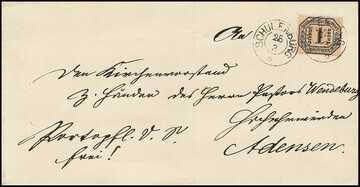 An
SCHULENBURG
26
3
1
den Kirchenvorstand
z. Händen des Herrn Pastors Wendeburg
Hochehrwürden
Portopfl. D. S.
frei!
Adensen.